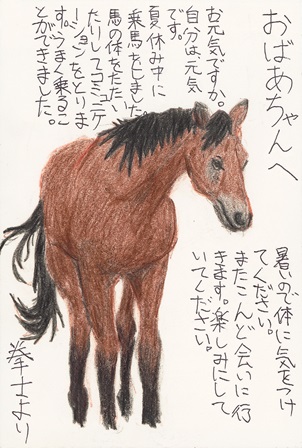 おばあちゃんへ
お元気ですか。
自分は元気
です。
夏休み中に
乗馬をしました。
馬の体をたたい
たりしてコミュニケ
ーションをとりま
す。うまく乗るこ
とができました。
暑いので体に気をつけ
てください。
またこんど会いに行
きます。楽しみにして
いてください。
拳士より